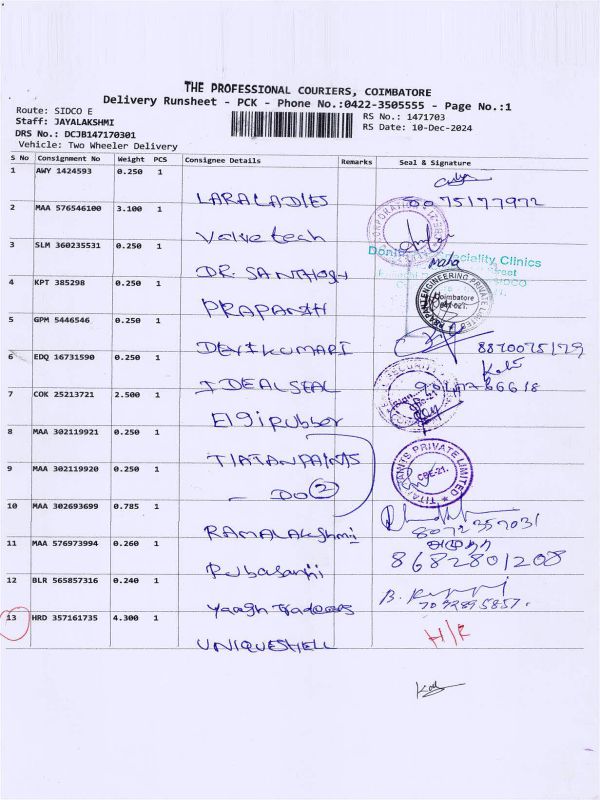 THE PROFESSIONAL COURIERS, COIMBATORE
Delivery Runsheet - PCK - Phone No.:0422-3505555 - Page No.:1
Route: SIDCO E
Staff: JAYALAKSHMI
DRS No.: DCJB147170301
Vehicle: Two Wheeler Delivery
RS No.: 1471703
RS Date: 10-Dec-2024
S No Consignment No Weight PCS Consignee Details Remarks Seal & Signature
1 AWY 1424593 0.250 1
LARALADIES 0075177972
2 MAA 576546100 3.100 1
Valve tech
3 SLM 360235531 0.250 1
DR. SANTHOSH
Speciality Clinics
Street
SIDCO
4 KPT 385298 0.250 1
PRAPANTH
PRAPANT ENGINEERING PRIVATE LIMITED
Coimbatore
641 021.
5 GPM 5446546 0.250 1
DEVIKUMARI 8870075179
6 EDQ 16731590 0.250 1
IDEALSEAL
7 COK 25213721 2.500 1
Elgi rubber
8 MAA 302119921 0.250 1
TIATANPAINTS
9 MAA 302119920 0.250 1
- DO (2)
PRIVATE LIMITED
CBE-21.
10 MAA 302693699 0.785 1
RAMALAKshmi 8072357031
11 MAA 576973994 0.260 1
8682801208
12 BLR 565857316 0.240 1
Yaagh Traders
13 HRD 357161735 4.300 1
UNIQUESHELL